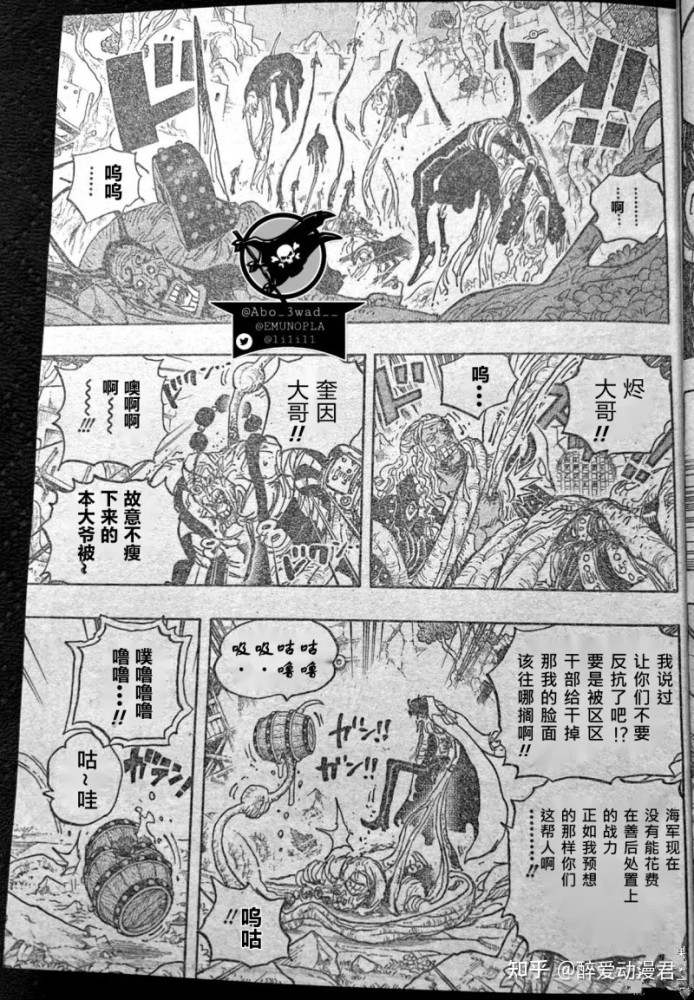 ド
ン
!!
………
啊
……
呜呜
……
@Abo_3wad__
@EMUNOPLA
@lilill
烬
大哥!!
呜
…
奎因
大哥!!
噢啊啊
啊～
～!!!
故意不瘦
下来的
本大爷被～
ドクン
我说过
让你们不要
反抗了吧!?
要是被区区
干部给干掉
那我的脸面
该往哪搁啊!!
海军现在
没有能花费
在善后处置上
的战力
正如我预想
的那样你们
这帮人啊
………!!
咕噜
咕噜
吸·
吸·
ガン!!
ガン!!
呜咕
!!
噗噜噜噜
噜噜…!!
咕～哇
ガラン!
知乎 @醉爱动漫君